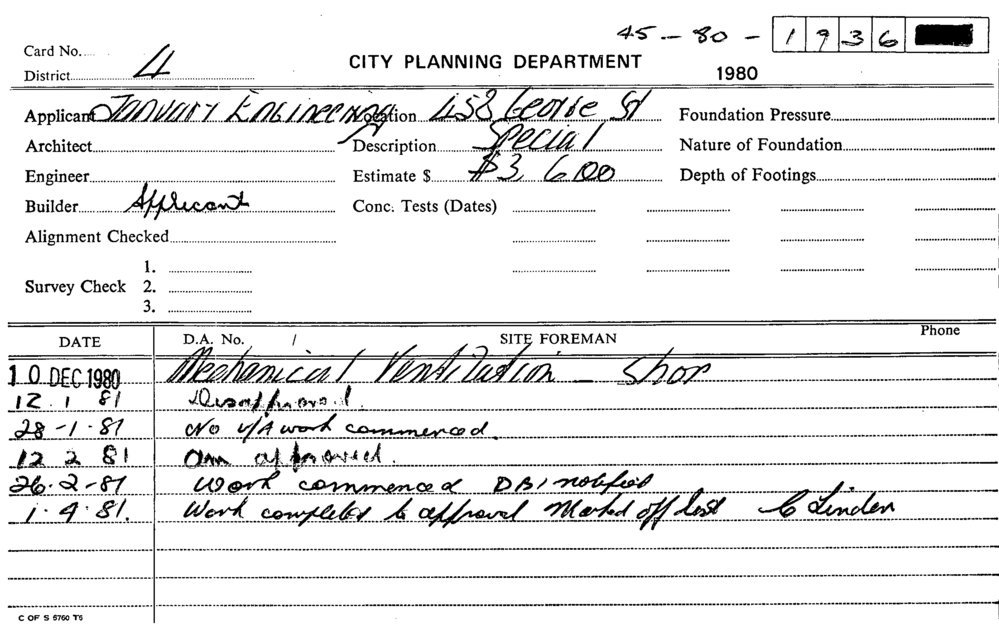 45-80-1936
Card No.
District 4
CITY PLANNING DEPARTMENT
1980
Applicant January Engineering Location 458 George St Foundation Pressure
Architect Description Special Nature of Foundation
Engineer Estimate $ $3,600 Depth of Footings
Builder Applicant Conc. Tests (Dates)
Alignment Checked
1.
Survey Check 2.
3.
DATE D.A. No. / SITE FOREMAN Phone
10 DEC 1980 Mechanical Ventilation - Shop
12.1 81 Disapproved.
28-1-81 No U/A work commenced.
12 2 81 am approved.
26.2-81 Work commenced DBI notified
1.4.81. Work completed to approval Marked off list C Linden
C OF S 6760 T6